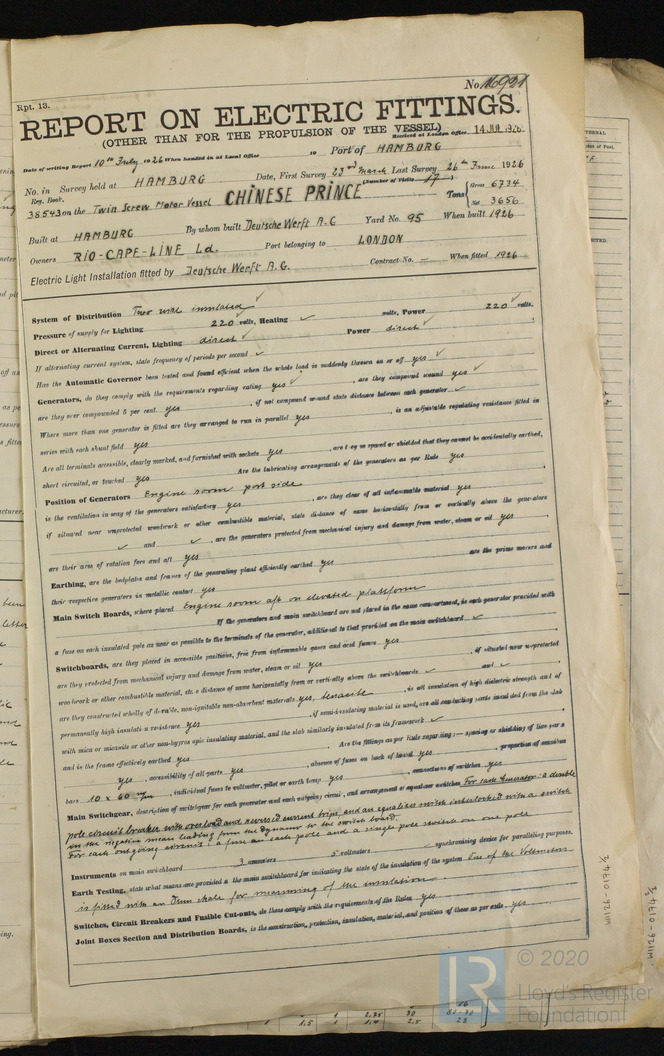 No. 16921
Rpt. 13.
REPORT ON ELECTRIC FITTINGS.
(OTHER THAN FOR THE PROPULSION OF THE VESSEL)
Received at London Office 14 JUL 1926
Date of writing Report 10th July 1926 When handed in at Local Office 10 Port of HAMBURG
No. in Survey held at HAMBURG Date, First Survey 23rd March Last Survey 26th June 1926
Reg. Book. (Number of Visits 17)
38543 on the Twin Screw Motor Vessel CHINESE PRINCE Tons { Gross 6734 Net 3656
Built at HAMBURG By whom built Deutsche Werft A.G Yard No. 95 When built 1926
Owners RIO-CAPE-LINE Ld. Port belonging to LONDON
Electric Light Installation fitted by Deutsche Werft A.G. Contract No. — When fitted 1926
System of Distribution Two wire insulated ✓
Pressure of supply for Lighting 220 volts, Heating ✓ volts, Power 220 ✓ volts.
Direct or Alternating Current, Lighting direct ✓ Power direct ✓
If alternating current system, state frequency of periods per second ✓
Has the Automatic Governor been tested and found efficient when the whole load is suddenly thrown on or off yes ✓
Generators, do they comply with the requirements regarding rating yes ✓, are they compound wound yes ✓
are they over compounded 5 per cent. yes, if not compound wound state distance between each generator ✓
Where more than one generator is fitted are they arranged to run in parallel yes, is an adjustable regulating resistance fitted in
series with each shunt field yes
Are all terminals accessible, clearly marked, and furnished with sockets yes, are they so spaced or shielded that they cannot be accidentally earthed,
short circuited, or touched yes Are the lubricating arrangements of the generators as per Rule yes
Position of Generators Engine room port side
is the ventilation in way of the generators satisfactory yes, are they clear of all inflammable material yes
if situated near unprotected woodwork or other combustible material, state distance of same horizontally from or vertically above the generators
✓ and ✓, are the generators protected from mechanical injury and damage from water, steam or oil yes
are their axes of rotation fore and aft yes
Earthing, are the bedplates and frames of the generating plant efficiently earthed yes are the prime movers and
their respective generators in metallic contact yes
Main Switch Boards, where placed Engine room aft on elevated platform
If the generators and main switchboard are not placed in the same compartment, is each generator provided with
a fuse on each insulated pole as near as possible to the terminals of the generator, additional to that provided on the main switchboard ✓
Switchboards, are they placed in accessible positions, free from inflammable gases and acid fumes yes
are they protected from mechanical injury and damage from water, steam or oil yes, if situated near unprotected
woodwork or other combustible material, state distance of same horizontally from or vertically above the switchboards ✓ and ✓
are they constructed wholly of durable, non-ignitable non-absorbent materials yes, is all insulation of high dielectric strength and of
permanently high insulation resistance yes, if semi-insulating material is used, are all conducting parts insulated from the slab
with mica or micanite or other non-hygroscopic insulating material, and the slab similarly insulated from its framework ✓
and is the frame effectively earthed yes Are the fittings as per Rule regarding:— spacing or shielding of live parts
yes, accessibility of all parts yes, absence of fuses on back of board yes, proportion of omnibus
bars 10 x 60 m/m, individual fuses to voltmeter, pilot or earth lamp yes, connections of switches yes
Main Switchgear, description of switchgear for each generator and each outgoing circuit, and arrangement of equaliser switches For each Generator: a double
pole circuit breaker with overload and reversed current trips, and an equaliser switch interlocked with a switch
in the negative main leading from the dynamo to the switch board.
For each outgoing circuit: a fuse on each pole and a single pole switch on one pole
Instruments on main switchboard 3 ammeters 5 voltmeters ✓ synchronising device for paralleling purposes.
Earth Testing, state what means are provided at the main switchboard for indicating the state of the insulation of the system One of the Voltmeters
is fitted with an Ohm scale for measuring of the insulation.
Switches, Circuit Breakers and Fusible Cut-outs, do these comply with the requirements of the Rules yes
Joint Boxes Section and Distribution Boards, is the construction, protection, insulation, material, and position of these as per rule yes
W1126-0174 1/2
© 2020
Lloyd's Register
Foundation